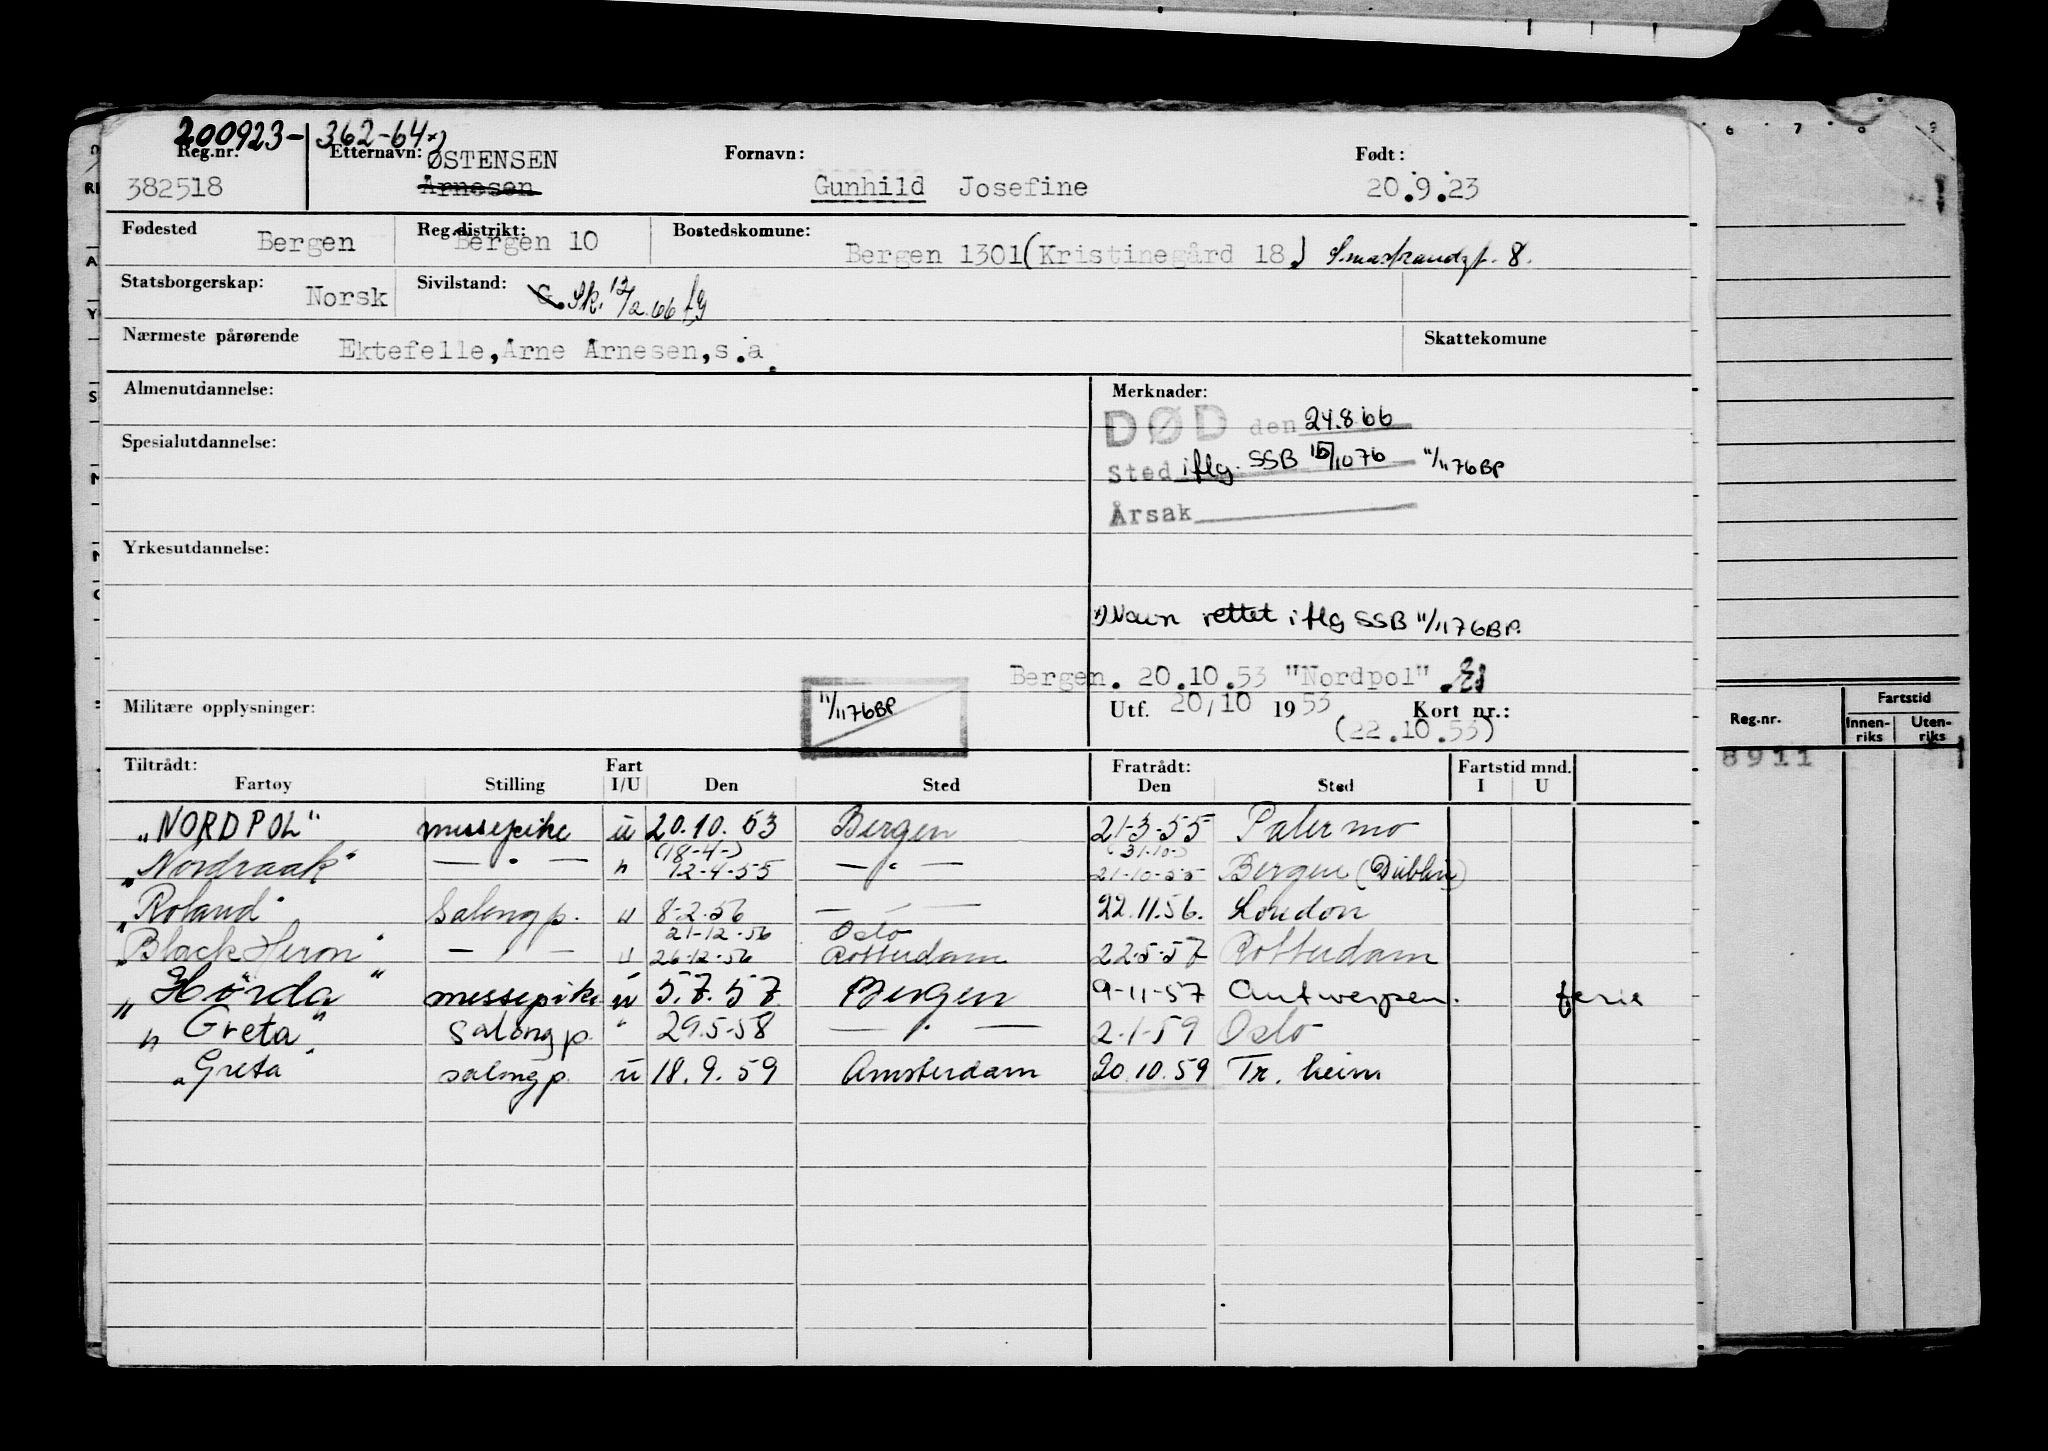 200923- 362-64 x)
Reg.nr. Etternavn: ØSTENSEN Fornavn: Født:
382518 Arnesen Gunhild Josefine 20.9.23
Fødested Bergen Reg.distrikt: Bergen 10 Bostedskomune: Bergen 1301 (Kristinegård 18) Smastrandgt. 8.
Statsborgerskap: Norsk Sivilstand: G. Sk. 12/2.66
Nærmeste pårørende Ektefelle, Arne Arnesen, s.a. Skattekomune
Almenutdannelse: Merknader:
DØD den 24.8.66
Spesialutdannelse:
Sted iflg. SSB 15/10 76 11/11 76 BP
Årsak
Yrkesutdannelse:
x) Navn rettet iflg SSB 11/11 76 BP.
Bergen. 20.10.53 "Nordpol"
Militære opplysninger: 11/11 76 BP Utf. 20/10 1953 Kort nr.:
(22.10.53)
Tiltrådt: Fart Fratrådt: Fartstid mnd.
Fartøy Stilling I/U Den Sted Den Sted I U
"NORDPOL" messepike u 20.10.53 Bergen 21-3-55 Palermo
(18-4-) (31-10-)
"Nordraak" — " — " 12-4-55 — " — 21-10-55 Bergen (Dublin)
"Roland" Salongp. u 8-2-56 — " — 22.11.56. London
21-12-56 Oslo
"Black Heron" — " — u 26-12-56 Rotterdam 22-5-57 Rotterdam
"Hørda" messepike u 5.7.57 Bergen 9-11-57 Antwerpen. ferie
"Greta" salongp. " 29.5-58 — " — 2-1-59 Oslo
"Greta" salongp. u 18.9.59 Amsterdam 20.10.59 Tr. heim
6 7 8 9
Reg.nr. Fartstid
Innen-
riks Uten-
riks
8911